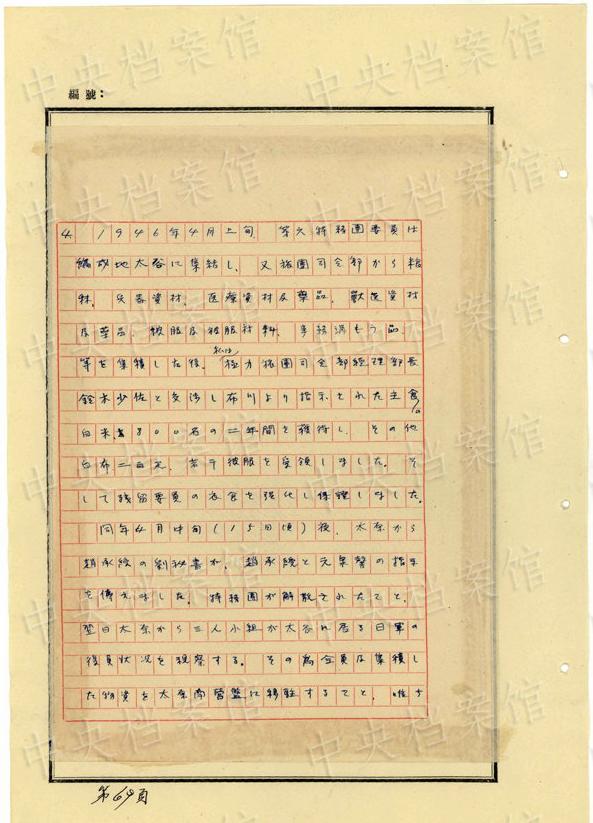 編號：
4. 1946年4月上旬、第六特務團要員は
編成地太谷に集結し、又旅團司令部から糧
秣、兵器資材、医療資材及薬品、獸医資材
及薬品、被服及被服材料、事務消もう品、
等を集積した後、私は極力旅團司令部経理部長
鈴木少佐と交渉し布川より指示された主食
白米800名の二年間を獲得し、その他
白布二百疋、若干被服を受領しました。そ
して残留要員の衣食を強化し保証しました。
同年4月中旬（15日頃）夜、太原から
趙承綬の劉秘書が、趙承綬と元泉馨の指示
を傳えました。特務團が解散されたこと、
翌日太原から三人小組が太谷に居る日軍の
復員状況を視察する。その為全員は集積し
た物資を太原南営盤に移駐すること、唯少
第64頁
中央档案馆